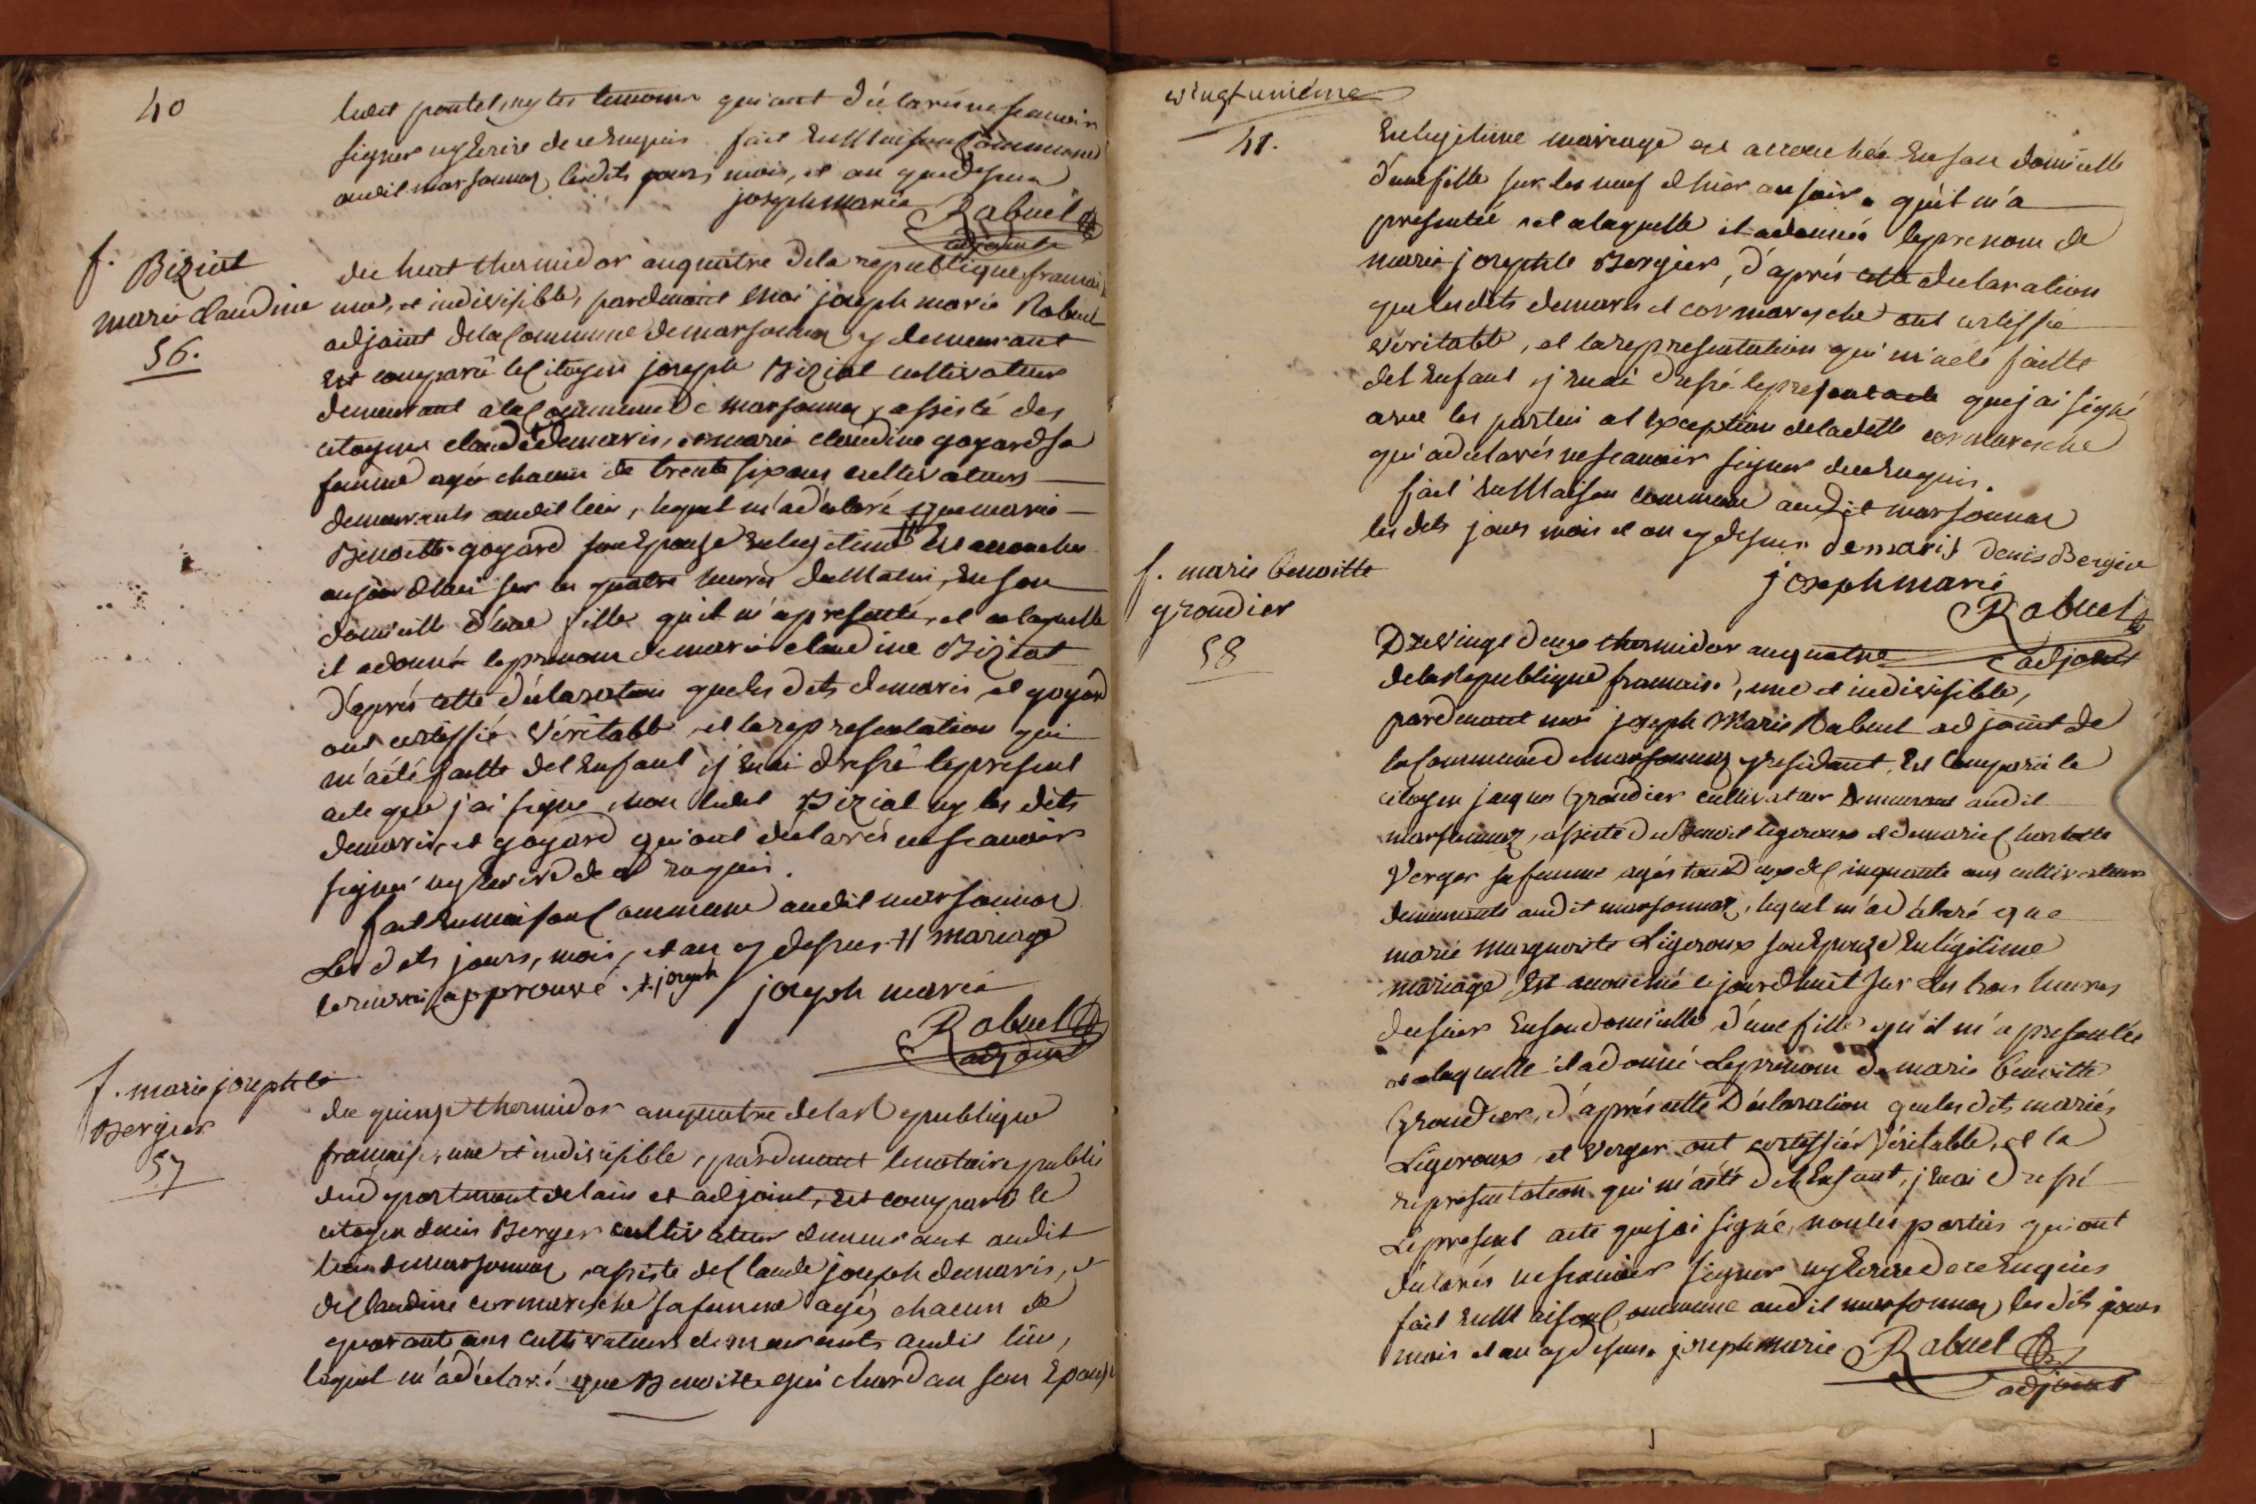 40
ludit poutel, ny les temoins qui ont déclarés ne scavoir
signer ny Ecrire de ce Enquis. fait En Maison Commune
audit marsonnas, lesdits jours, mois, et an que dessus
joseph marie Rabuel
adjoint
f. Biziat
marie claudine
56.
du huit thermidor an quatre dela republique francaise
une, et indivisible, pardevant moi joseph marie Rabuel
adjoint dela Commune de marsonnas y demeurant
Est comparu le Citoyen joseph Biziat cultivateur
demeurant ala Commune de marsonnas, assisté des
citoyens claude demaris, et marie claudine goyard sa
femme agés chacun de trente six ans cultivateurs
demeurants audit lieu, lequel m'a déclaré que marie
Benoitte goyard son Epouse En legitime # Est accouchée
aujourdhui sur les quatre heures du Matin, En son
domicille d'une fille qu'il m'a presenté, et a laquelle
il a donné le prenom de marie claudine Biziat
d'après cette déclaration que les dits demaris et goyard
ont certiffié véritable, et la representation qui
m'a été faitte del Enfant, j'En ai dressé le present
acte que j'ai signé, non ludit Biziat ny les dits
demaris et goyard qui ont déclarés ne scavoir
signer ny Ecrire de ce Enquis.
fait En maison Commune audit marsonnas
Les dits jours, mois, et an cy dessus. # mariage
le renvoi approuvé. + joseph
joseph marie
Rabuel
adjoint
f. marie josephte
Bergier
57
du quinze thermidor an quatre dela Republique
francaise, une et indivisible, pardevant le notaire public
du departement delain et adjoint, Est comparu le
citoyen denis Berger cultivateur demeurant audit
lieu de marsonnas, assisté de Claude joseph demaris, et
de Claudine cormaresche sa femme agés chacun de
quarante ans cultivateurs demeurants audit lieu,
lequel m'a déclaré que Benoitte guichardan son Epouse
vingt unième
41.
En legitime mariage est accouchée En son domicille
d'une fille sur les neuf d'hier au soir. qu'il m'a
presentée et a laquelle il a donnée le prenom de
marie josephte Bergier, d'après cette declaration
que lesdits demaris et cormaresche ont certiffié
véritable, et la representation qui m'a été faitte
del Enfant, j'En ai dressé le present acte que j'ai signé
avec les parties a l'exception deladitte cormaresche
qui a déclarés ne scavoir signer de ce Enquis.
fait En Maison commune audit marsonnas
les dits jours mois et an cy dessus. demaris denis Bergier
joseph marie
Rabuel
adjoint
f. marie benoitte
groudier
58
Du vingt deux thermidor an quatre
de la Republique francaise, une et indivisible,
pardevant moi joseph Marie Rabuel adjoint de
la Commune de marsonnas y residant, Est Comparu le
citoyen jacques Groudier cultivateur Demeurant audit
marsonnas, assisté de Benoit ligeroux et de marie Charlotte
Verger sa femme agés tous deux de Cinquante ans cultivateurs
demeurants audit marsonnas, lequel m'a déclaré que
marie marguerite Ligeroux son Epouse En légitime
mariage Est accouchée ce jourdhuit sur Les trois heures
du soir En son domicille d'une fille qu'il m'a presentée
et a laquelle il a donné Le prenom de marie benoitte
Groudier, d'après cette Déclaration que les dits mariés
Ligeroux et Verger ont certiffiée véritable, et la
representation qui m'a été del Enfant, j'En ai dressé
Le present acte que j'ai signé, non les parties qui ont
déclarés ne scavoir signer ny Ecrire de ce Enquies
fait En Maison Commune audit marsonnas, les dits jours
mois et an cy dessus. joseph marie Rabuel
adjoint